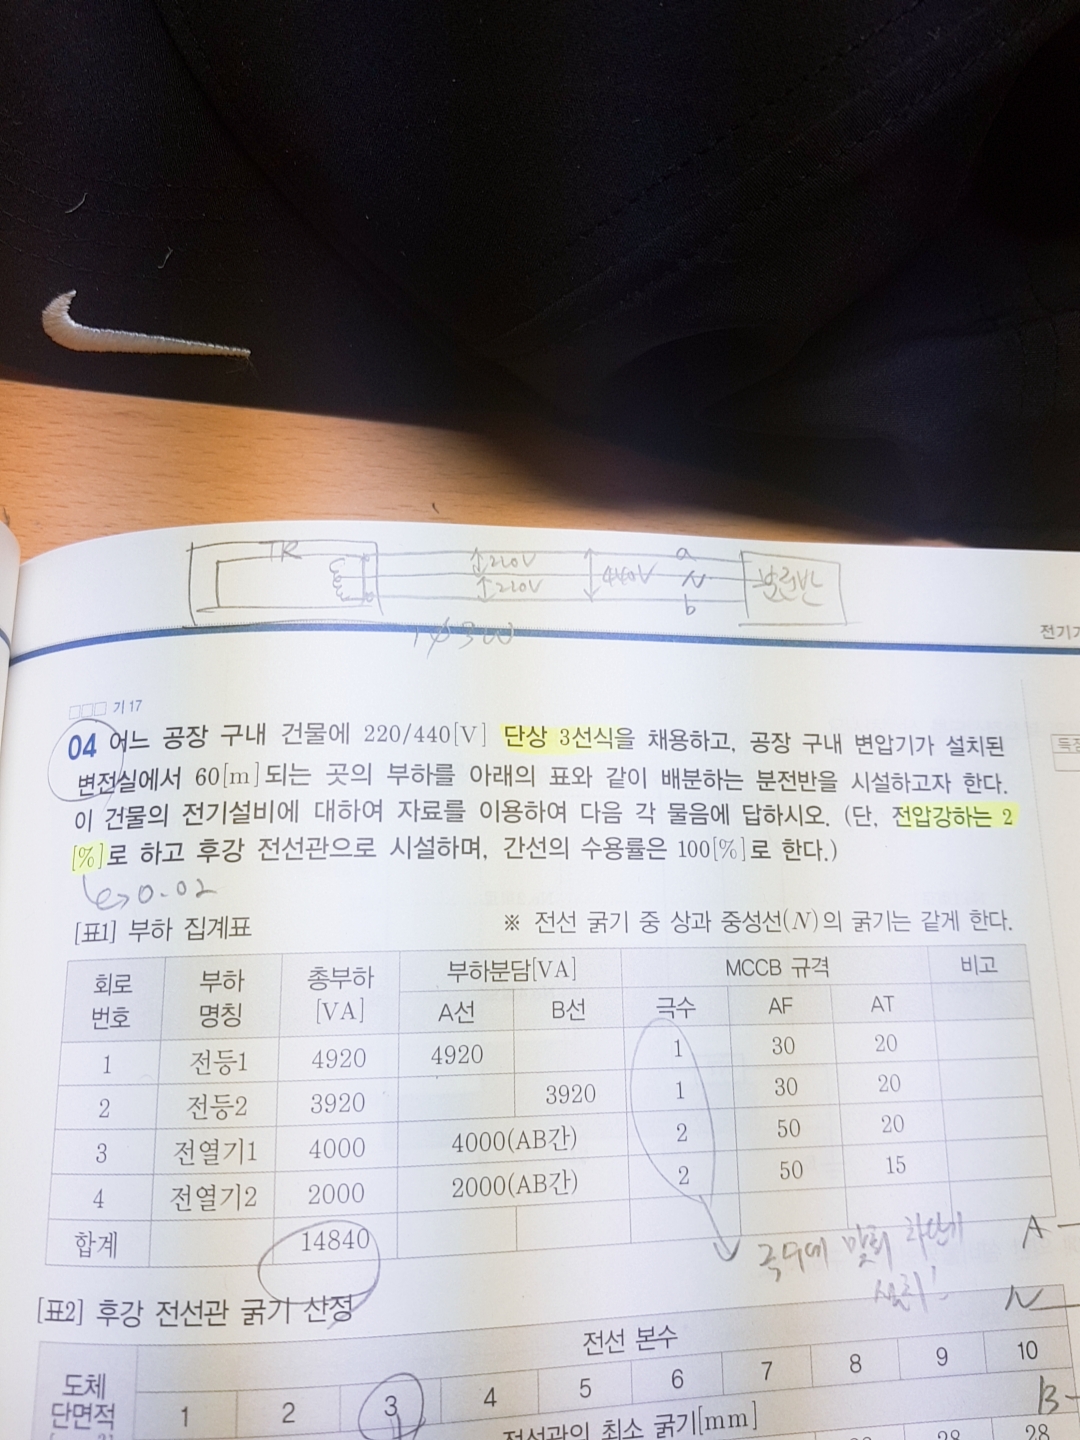 TR
220V
220V
440V
a
N
b
분전반
1φ3W
전기기
기 17
04 어느 공장 구내 건물에 220/440[V] 단상 3선식을 채용하고, 공장 구내 변압기가 설치된
변전실에서 60[m]되는 곳의 부하를 아래의 표와 같이 배분하는 분전반을 시설하고자 한다.
이 건물의 전기설비에 대하여 자료를 이용하여 다음 각 물음에 답하시오. (단, 전압강하는 2
[%]로 하고 후강 전선관으로 시설하며, 간선의 수용률은 100[%]로 한다.)
득점
0.02
[표1] 부하 집계표 ※ 전선 굵기 중 상과 중성선(N)의 굵기는 같게 한다.
회로 번호 부하 명칭 총부하 [VA] 부하분담[VA] MCCB 규격 비고
A선 B선 극수 AF AT
1 전등1 4920 4920 1 30 20
2 전등2 3920 3920 1 30 20
3 전열기1 4000 4000(AB간) 2 50 20
4 전열기2 2000 2000(AB간) 2 50 15
합계 14840
극수에 맞춰 차단기
설치!
A
N
B
[표2] 후강 전선관 굵기 산정
도체 단면적 전선 본수
1 2 3 4 5 6 7 8 9 10
전선관의 최소 굵기[mm]
28 28